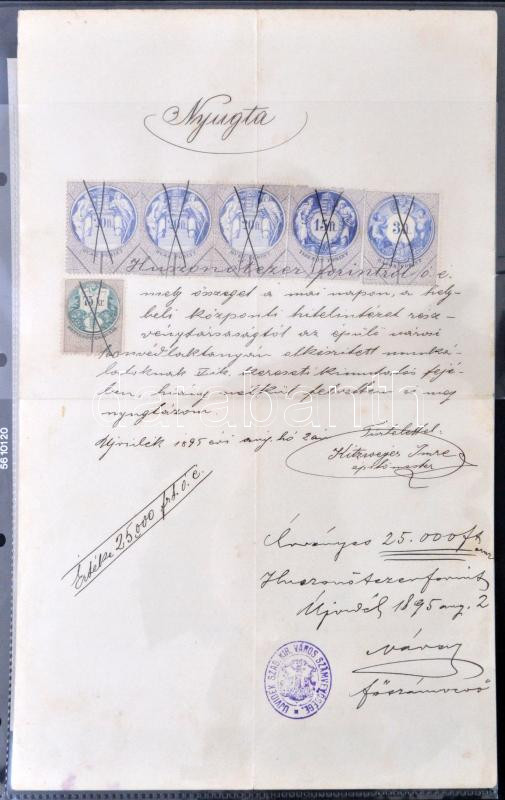 Nyugta
20 ft
20 ft
20 ft
15 ft
3 ft
75 kr
Huszonötezer forintról ó. é.
mely összeget a mai napon, a hely-
beli központi hitelintézet rész-
vénytársaságtól az épülő városi
honvédlaktanyán elkészített munká-
latoknak II ik kereseti kimutatás fejé-
ben, hiány nélkül felvettem és meg
nyugtázom.
Ujvidék 1895 évi aug. hó 2án
Tisztelettel:
Kitzweger Imre
építőmester
Értéke 25,000 frt. ó. é.
Érvényes 25.000 ft
Huszonötezer forint
Ujvidék 1895 aug. 2
főszámvevő
UJVIDÉK SZAB. KIR. VÁROS SZÁMVEVŐSÉGE.
darabanth
5610120